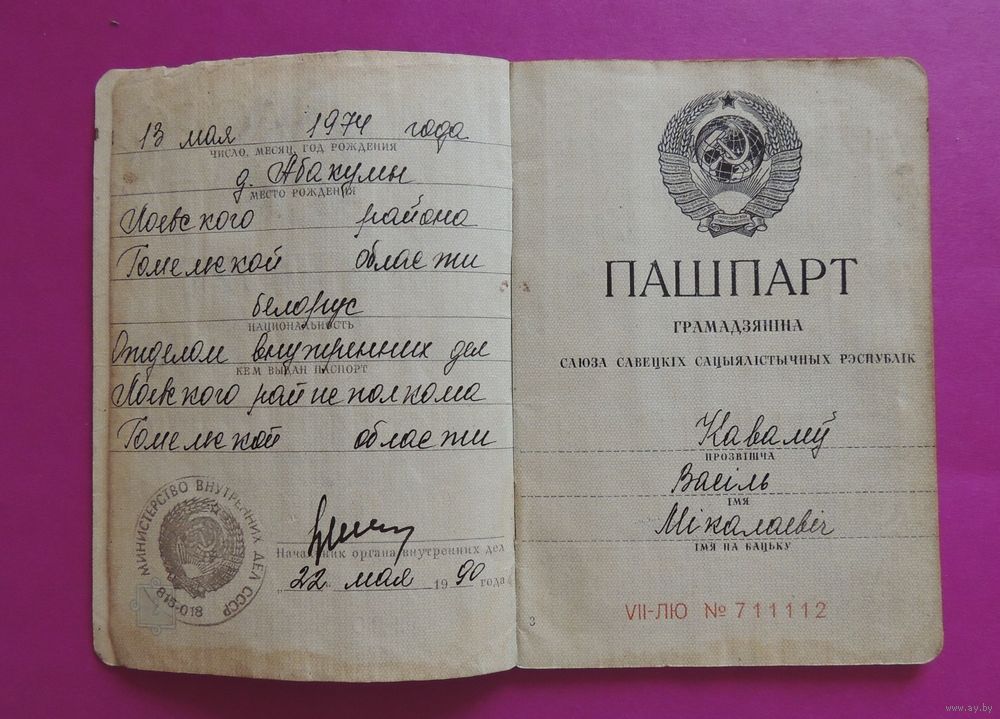 13 мая 1974 года
ЧИСЛО, МЕСЯЦ, ГОД РОЖДЕНИЯ
д. Абакумы
МЕСТО РОЖДЕНИЯ
Лоевского района
Гомельской области
белорус
НАЦИОНАЛЬНОСТЬ
Отделом внутренних дел
КЕМ ВЫДАН ПАСПОРТ
Лоевского райисполкома
Гомельской области
МИНИСТЕРСТВО ВНУТРЕННИХ ДЕЛ СССР
813-018
Начальник органа внутренних дел
„22" мая 1990 года
ПАШПАРТ
ГРАМАДЗЯНІНА
САЮЗА САВЕЦКІХ САЦЫЯЛІСТЫЧНЫХ РЭСПУБЛІК
Кавалёў
ПРОЗВІШЧА
Васіль
ІМЯ
Мікалаевіч
ІМЯ ПА БАЦЬКУ
VII-ЛЮ № 711112
3
www.ay.by